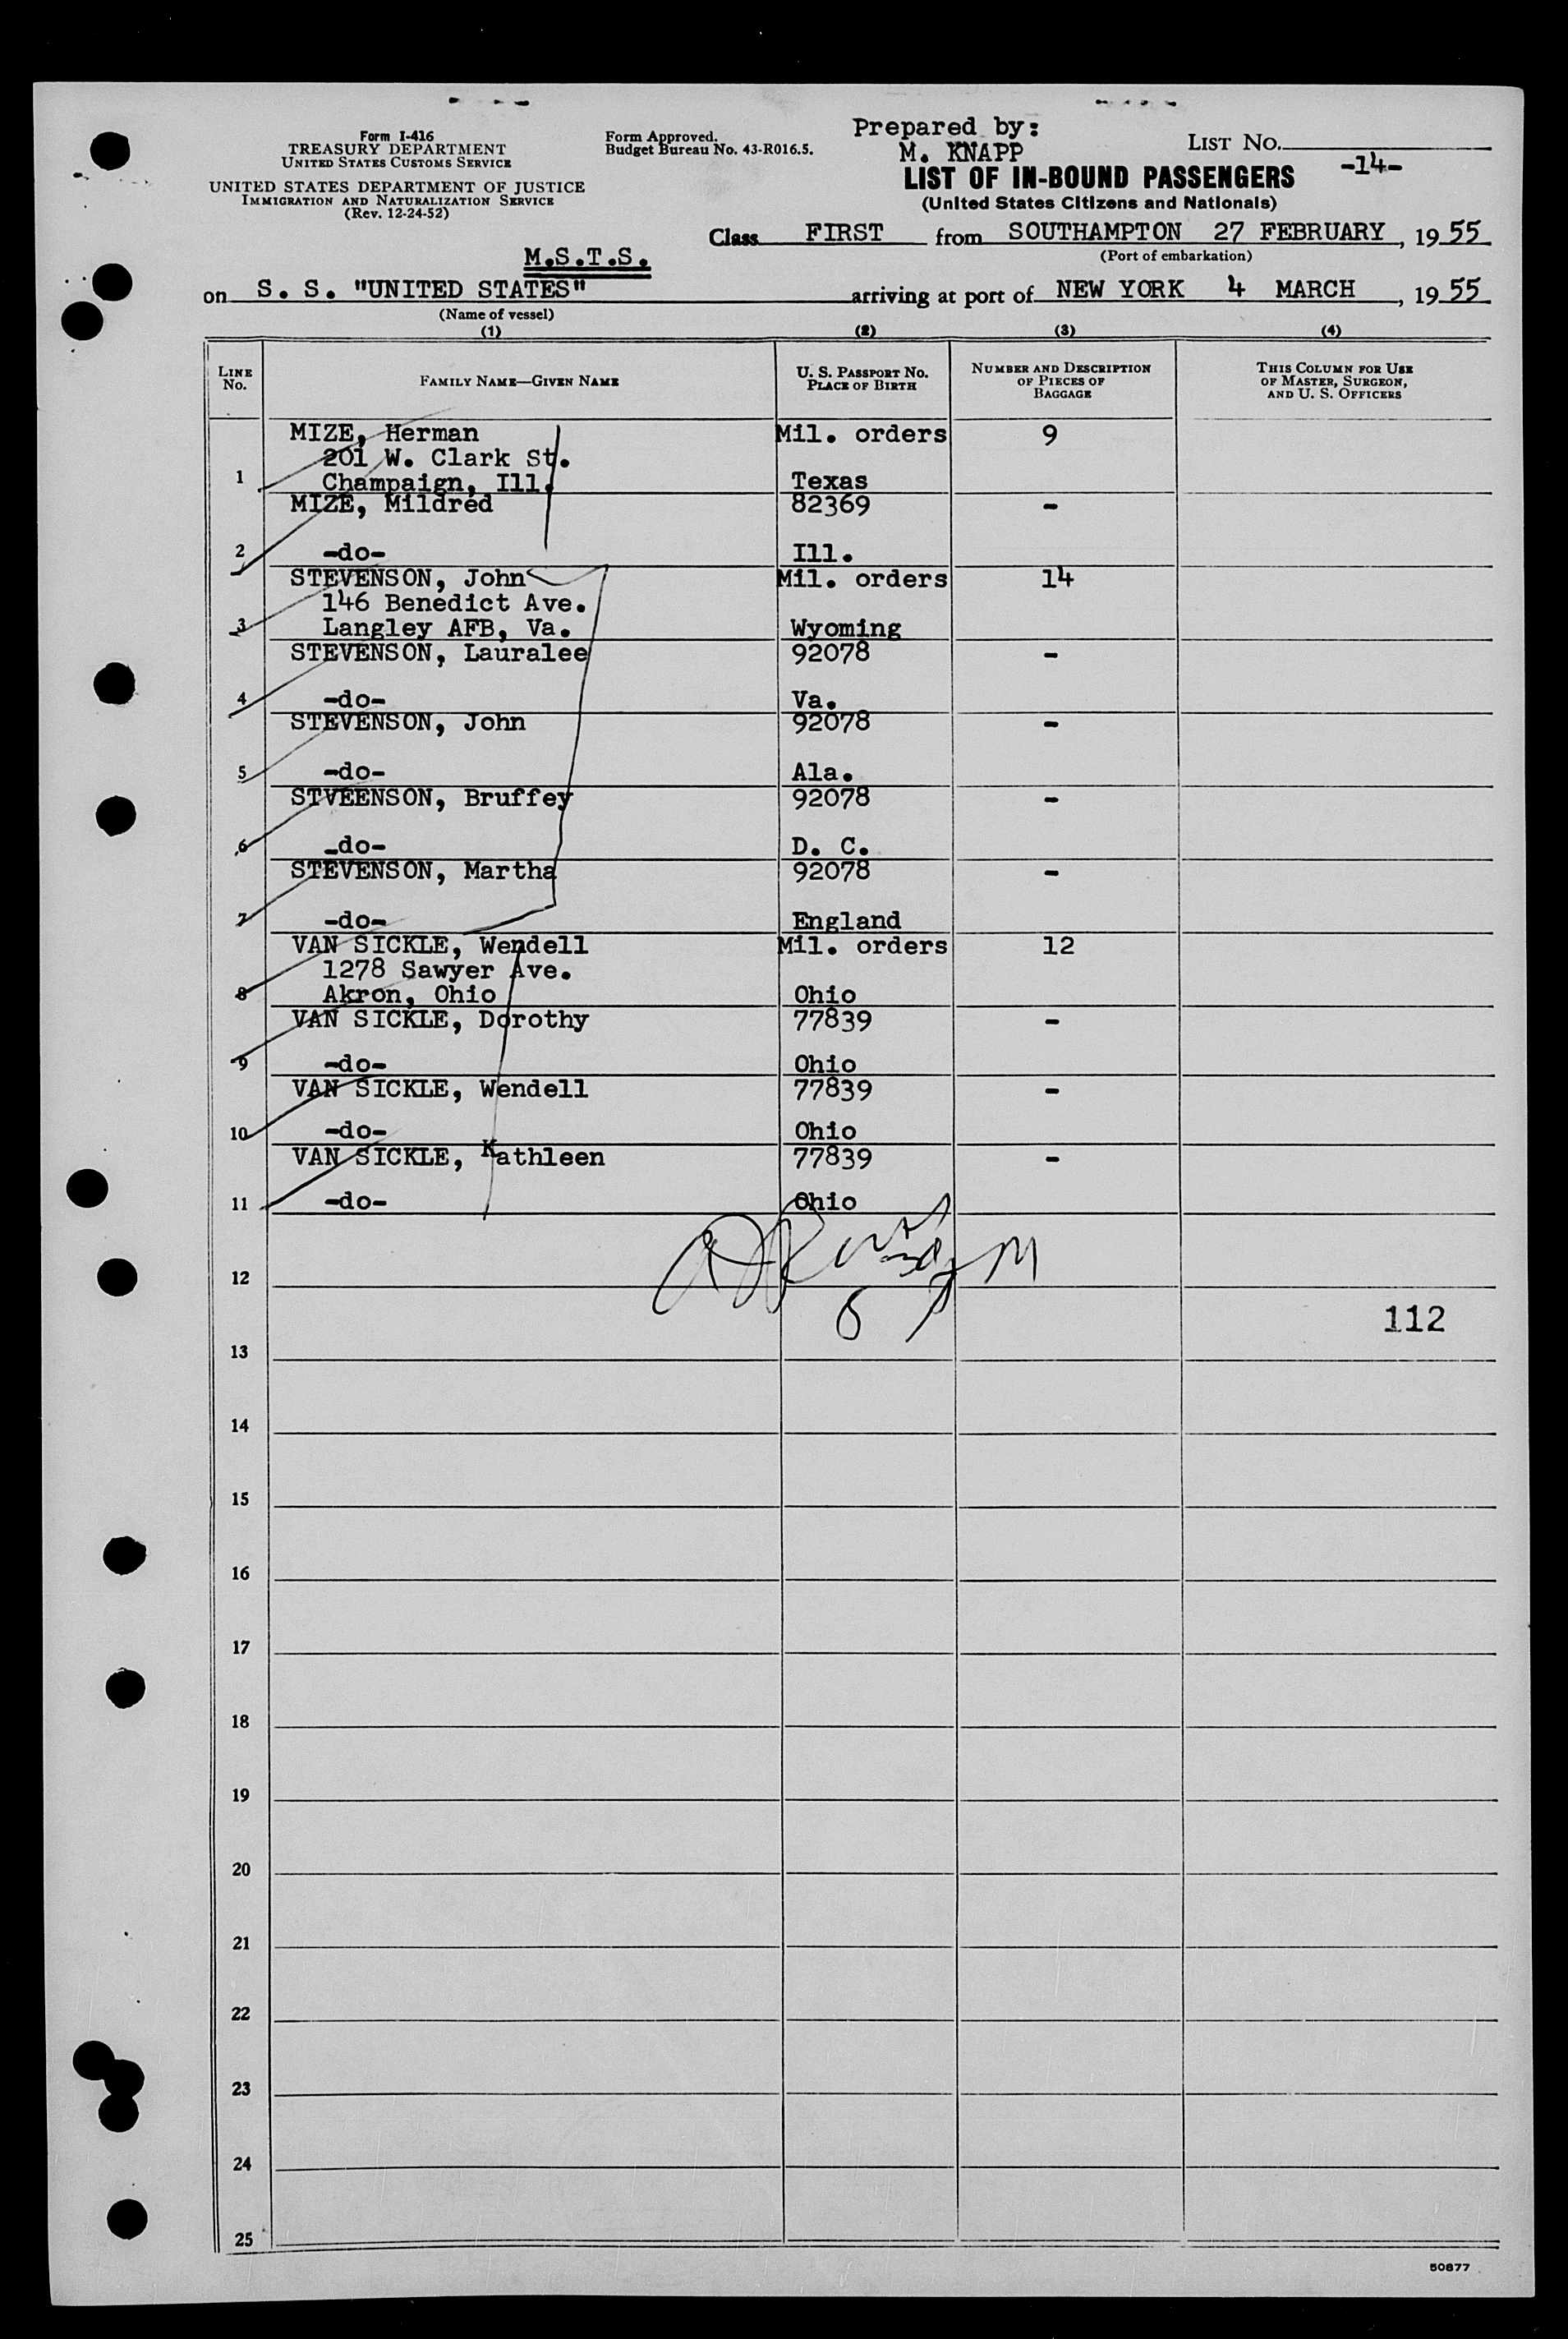 Form I-416
TREASURY DEPARTMENT
UNITED STATES CUSTOMS SERVICE
UNITED STATES DEPARTMENT OF JUSTICE
IMMIGRATION AND NATURALIZATION SERVICE
(Rev. 12-24-52)
Form Approved.
Budget Bureau No. 43-R016.5.
Prepared by:
M. KNAPP
LIST NO.
-14-
LIST OF IN-BOUND PASSENGERS
(United States Citizens and Nationals)
Class FIRST from SOUTHAMPTON 27 FEBRUARY, 1955
(Port of embarkation)
M.S.T.S.
on S. S. "UNITED STATES" arriving at port of NEW YORK 4 MARCH, 1955
(Name of vessel)
(1) (2) (3) (4)
LINE NO. FAMILY NAME—GIVEN NAME U. S. PASSPORT NO. PLACE OF BIRTH NUMBER AND DESCRIPTION OF PIECES OF BAGGAGE THIS COLUMN FOR USE OF MASTER, SURGEON, AND U. S. OFFICERS
MIZE, Herman Mil. orders 9
201 W. Clark St.
1 Champaign, Ill. Texas
MIZE, Mildred 82369 -
2 -do- Ill.
STEVENSON, John Mil. orders 14
146 Benedict Ave.
3 Langley AFB, Va. Wyoming
STEVENSON, Lauralee 92078 -
4 -do- Va.
STEVENSON, John 92078 -
5 -do- Ala.
STVEENSON, Bruffey 92078 -
6 -do- D. C.
STEVENSON, Martha 92078 -
7 -do- England
VAN SICKLE, Wendell Mil. orders 12
1278 Sawyer Ave.
8 Akron, Ohio Ohio
VAN SICKLE, Dorothy 77839 -
9 -do- Ohio
VAN SICKLE, Wendell 77839 -
10 -do- Ohio
VAN SICKLE, Kathleen 77839 -
11 -do- Ohio
12
112
13
14
15
16
17
18
19
20
21
22
23
24
25
50877